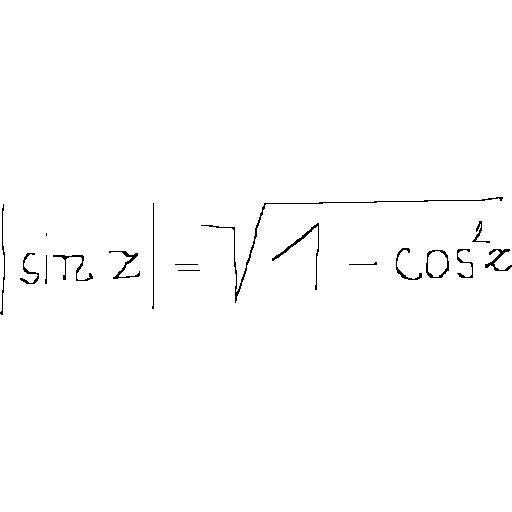 |sin z| = √1 - cos²z